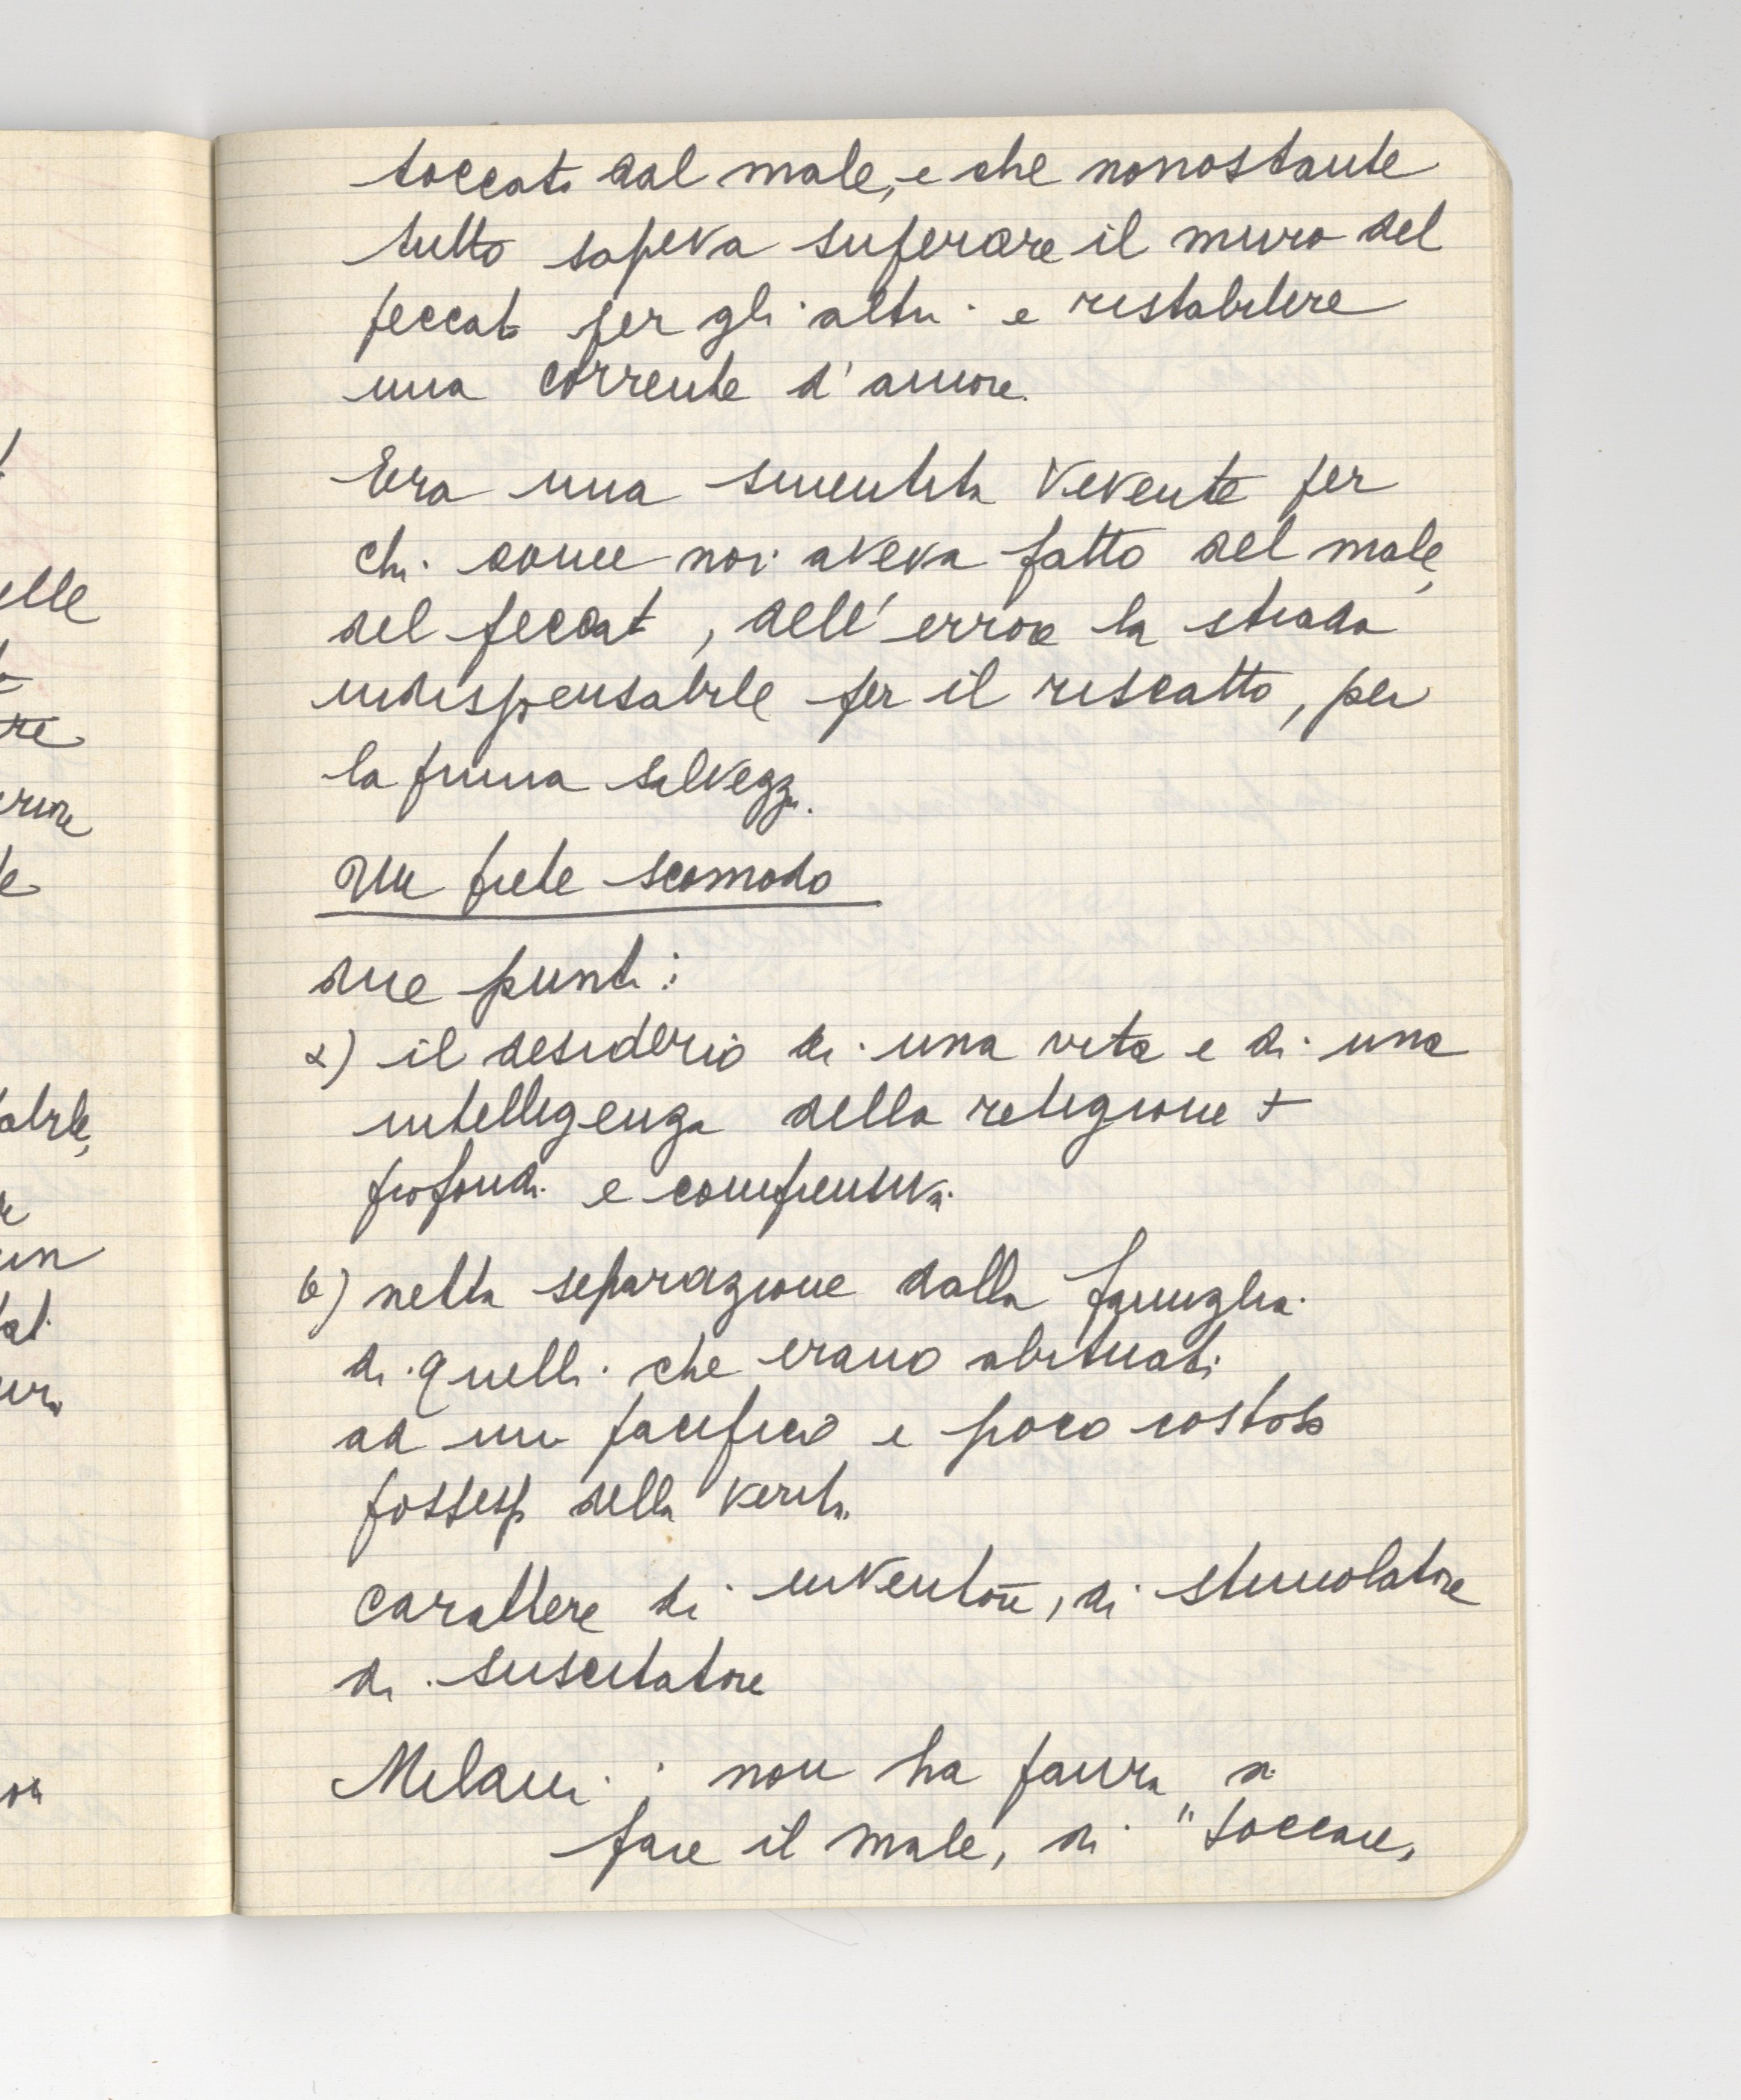 toccato dal male, e che nonostante
tutto sapeva superare il muro del
peccato per gli altri e ristabilire
una corrente d'amore.
Era una smentita vivente per
chi come noi aveva fatto del male,
del peccato, dell'errore la strada
indispensabile per il riscatto, per
la prima salvezza.
Un prete scomodo
due punti:
a) il desiderio di una vita e di una
intelligenza della religione +
profondi e comprensivi
b) netta separazione dalla famiglia
di quelli che erano abituati
ad un pacifico e poco costoso
possesso della verità.
carattere di inventore, di stimolatore
di suscitatore
Milani: non ha paura di
fare il male, di "toccare,
elle
re